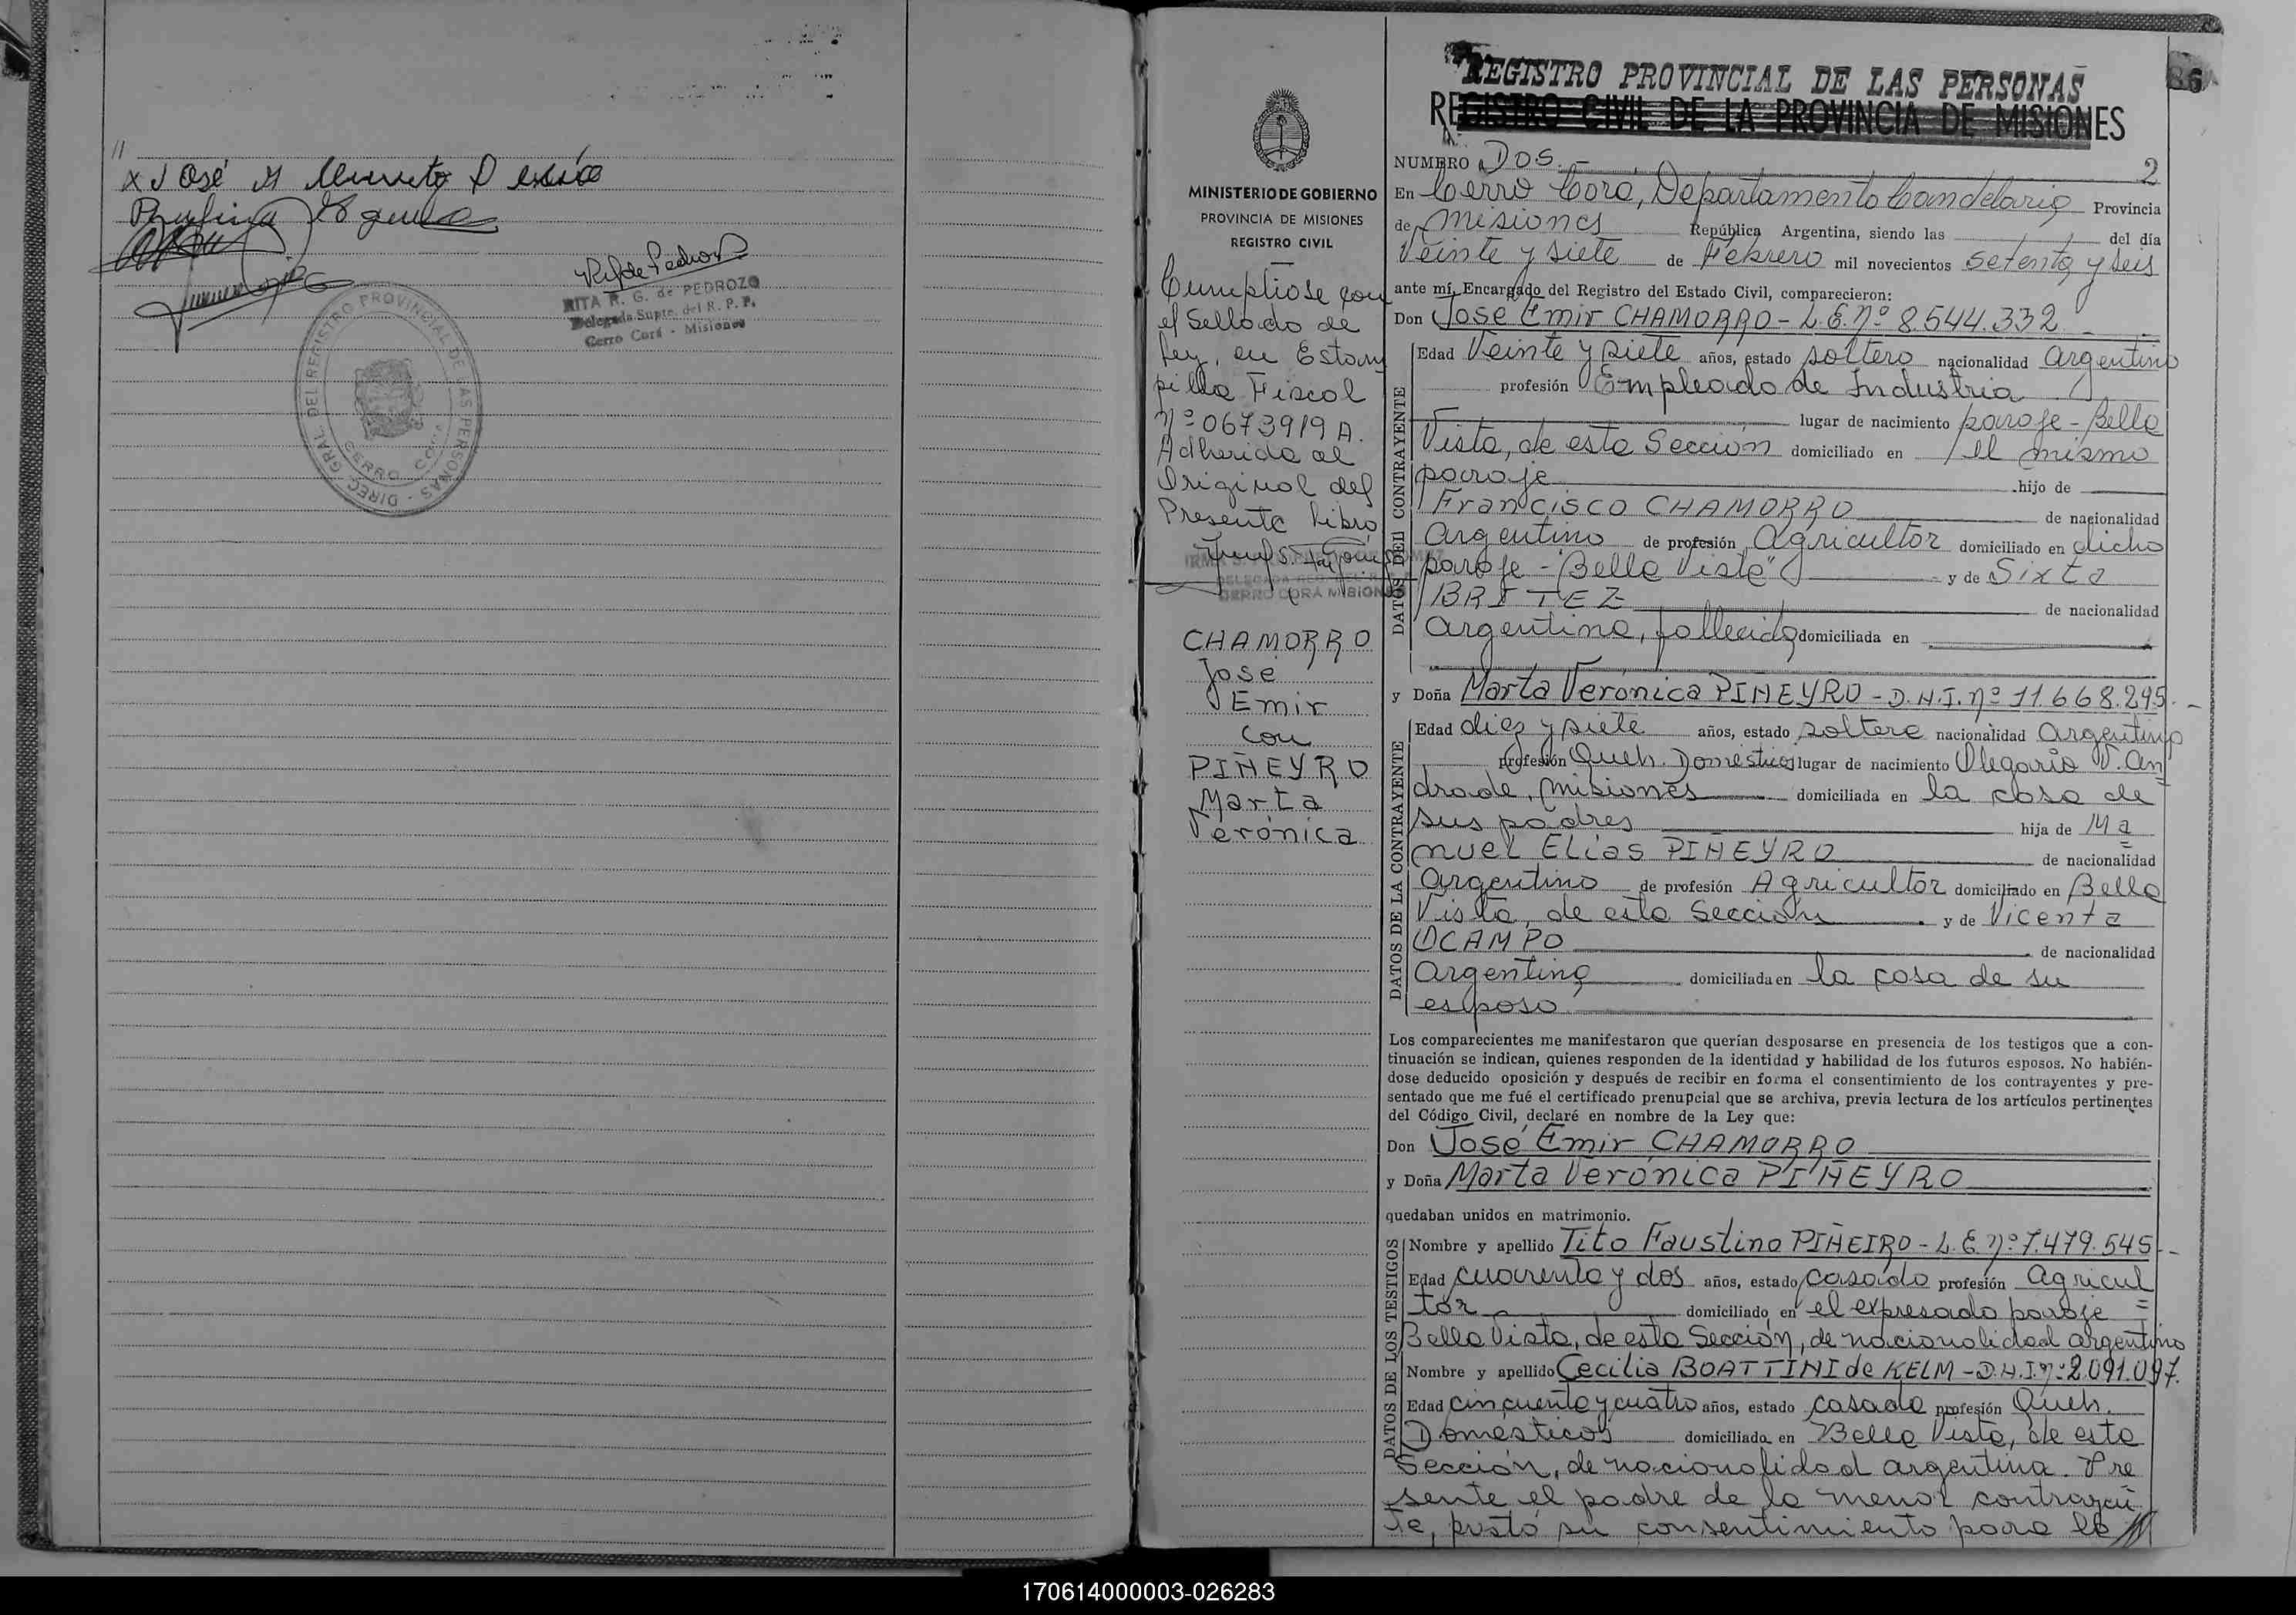 //
x José M
RITA R. G. de PEDROZO
Delegada Supte. del R. P. P.
Cerro Corá - Misiones
DIREC. GRAL. DEL REGISTRO PROVINCIAL DE LAS PERSONAS -
CERRO CORÁ
MINISTERIO DE GOBIERNO
PROVINCIA DE MISIONES
REGISTRO CIVIL
Cumplióse con
el Sellado de
Ley, en Estam
pilla Fiscal
Nº 0673919 A.
Adherida al
Original del
Presente libro
CERRO CORA MISIONES
CHAMORRO
José
Emir
con
PIÑEYRO
Marta
Verónica
REGISTRO PROVINCIAL DE LAS PERSONAS
REGISTRO CIVIL DE LA PROVINCIA DE MISIONES
86
NUMERO Dos.- 2
En Cerro Corá, Departamento Candelaria Provincia
de Misiones República Argentina, siendo las del día
Veinte y siete de Febrero mil novecientos setenta y seis
ante mí, Encargado del Registro del Estado Civil, comparecieron:
Don José Emir CHAMORRO - L.E. Nº 8.544.332.-
DATOS DEL CONTRAYENTE
Edad Veinte y siete años, estado soltero nacionalidad argentino
profesión Empleado de Industria
lugar de nacimiento paraje - Bella
Vista, de esta Sección domiciliado en el mismo
paraje hijo de
Francisco CHAMORRO de nacionalidad
argentino de profesión Agricultor domiciliado en dicho
paraje - "Bella Vista" y de Sixta
BRITEZ de nacionalidad
argentina, fallecida domiciliada en
y Doña Marta Verónica PIÑEYRO - D.N.I. Nº 11.668.295.-
DATOS DE LA CONTRAYENTE
Edad diez y siete años, estado soltera nacionalidad Argentina
profesión Queh. Domésticos lugar de nacimiento Olegario V. An
drade, Misiones domiciliada en la casa de
sus padres hija de Ma
nuel Elías PIÑEYRO de nacionalidad
Argentino de profesión Agricultor domiciliado en Bella
Vista, de esta Sección y de Vicenta
OCAMPO de nacionalidad
Argentina domiciliada en la casa de su
esposo
Los comparecientes me manifestaron que querían desposarse en presencia de los testigos que a con-
tinuación se indican, quienes responden de la identidad y habilidad de los futuros esposos. No habién-
dose deducido oposición y después de recibir en forma el consentimiento de los contrayentes y pre-
sentado que me fué el certificado prenupcial que se archiva, previa lectura de los artículos pertinentes
del Código Civil, declaré en nombre de la Ley que:
Don José Emir CHAMORRO
y Doña Marta Verónica PIÑEYRO
quedaban unidos en matrimonio.
DATOS DE LOS TESTIGOS
Nombre y apellido Tito Faustino PIÑEIRO - L.E. Nº 7.479.545.-
Edad cuarenta y dos años, estado casado profesión agricul
tor domiciliado en el expresado paraje =
Bella Vista, de esta Sección, de nacionalidad argentino
Nombre y apellido Cecilia BOATTINI de KELM - D.N.I. Nº 2.091.097.
Edad cincuenta y cuatro años, estado casada profesión Queh.
Domésticos domiciliado en Bella Vista, de esta
Sección, de nacionalidad argentina. Pre
sente el padre de la menor contrayen
te, prestó su consentimiento para la //
170614000003-026283